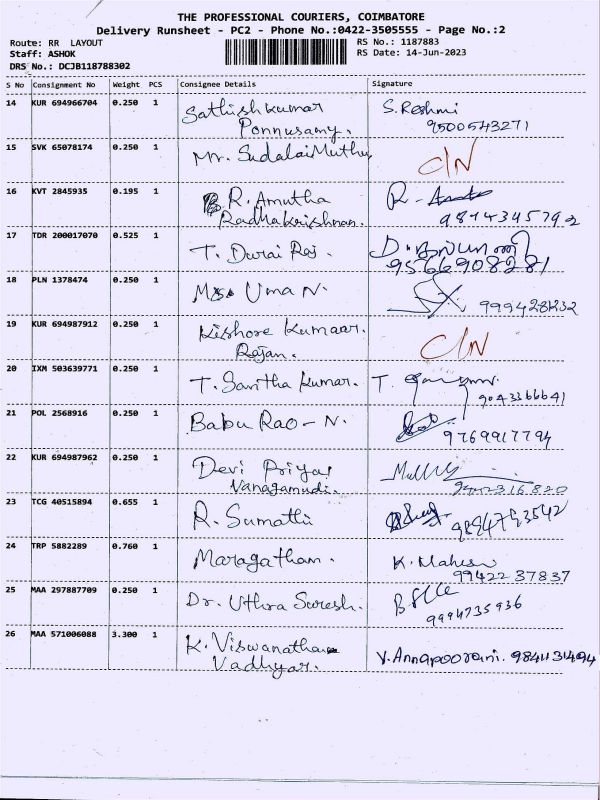 THE PROFESSIONAL COURIERS, COIMBATORE
Delivery Runsheet - PC2 - Phone No.:0422-3505555 - Page No.:2
Route: RR LAYOUT RS No.: 1187883
Staff: ASHOK RS Date: 14-Jun-2023
DRS No.: DCJB118788302
S No Consignment No Weight PCS Consignee Details Signature
14 KUR 694966704 0.250 1 Sathishkumar S. Reshmi
Ponnusamy. 9500543271
15 SVK 65078174 0.250 1 Mr. SudalaiMuthu C/N
16 KVT 2845935 0.195 1 R. Amutha R-
Radhakrishnan. 9874345792
17 TDR 200017070 0.525 1 T. Durai Raj.
9566908281
18 PLN 1378474 0.250 1 Ms. Uma N.
9994281232
19 KUR 694987912 0.250 1 Kishore Kumaar. C/N
Rajan.
20 IXM 503639771 0.250 1 T. Santha Kumar. T.
9043366641
21 POL 2568916 0.250 1 Babu Rao - N.
9769917794
22 KUR 694987962 0.250 1 Devi Priya
Vanagamudi. 9442316820
23 TCG 40515894 0.655 1 R. Sumathi
9894793542
24 TRP 5882289 0.760 1 Maragatham. K. Mahesw
99422 37837
25 MAA 297887709 0.250 1 Dr. Uthra Suresh.
9994735936
26 MAA 571006088 3.300 1 K. Viswanathan V. Annapoorani. 9841131494
Vadhyar.